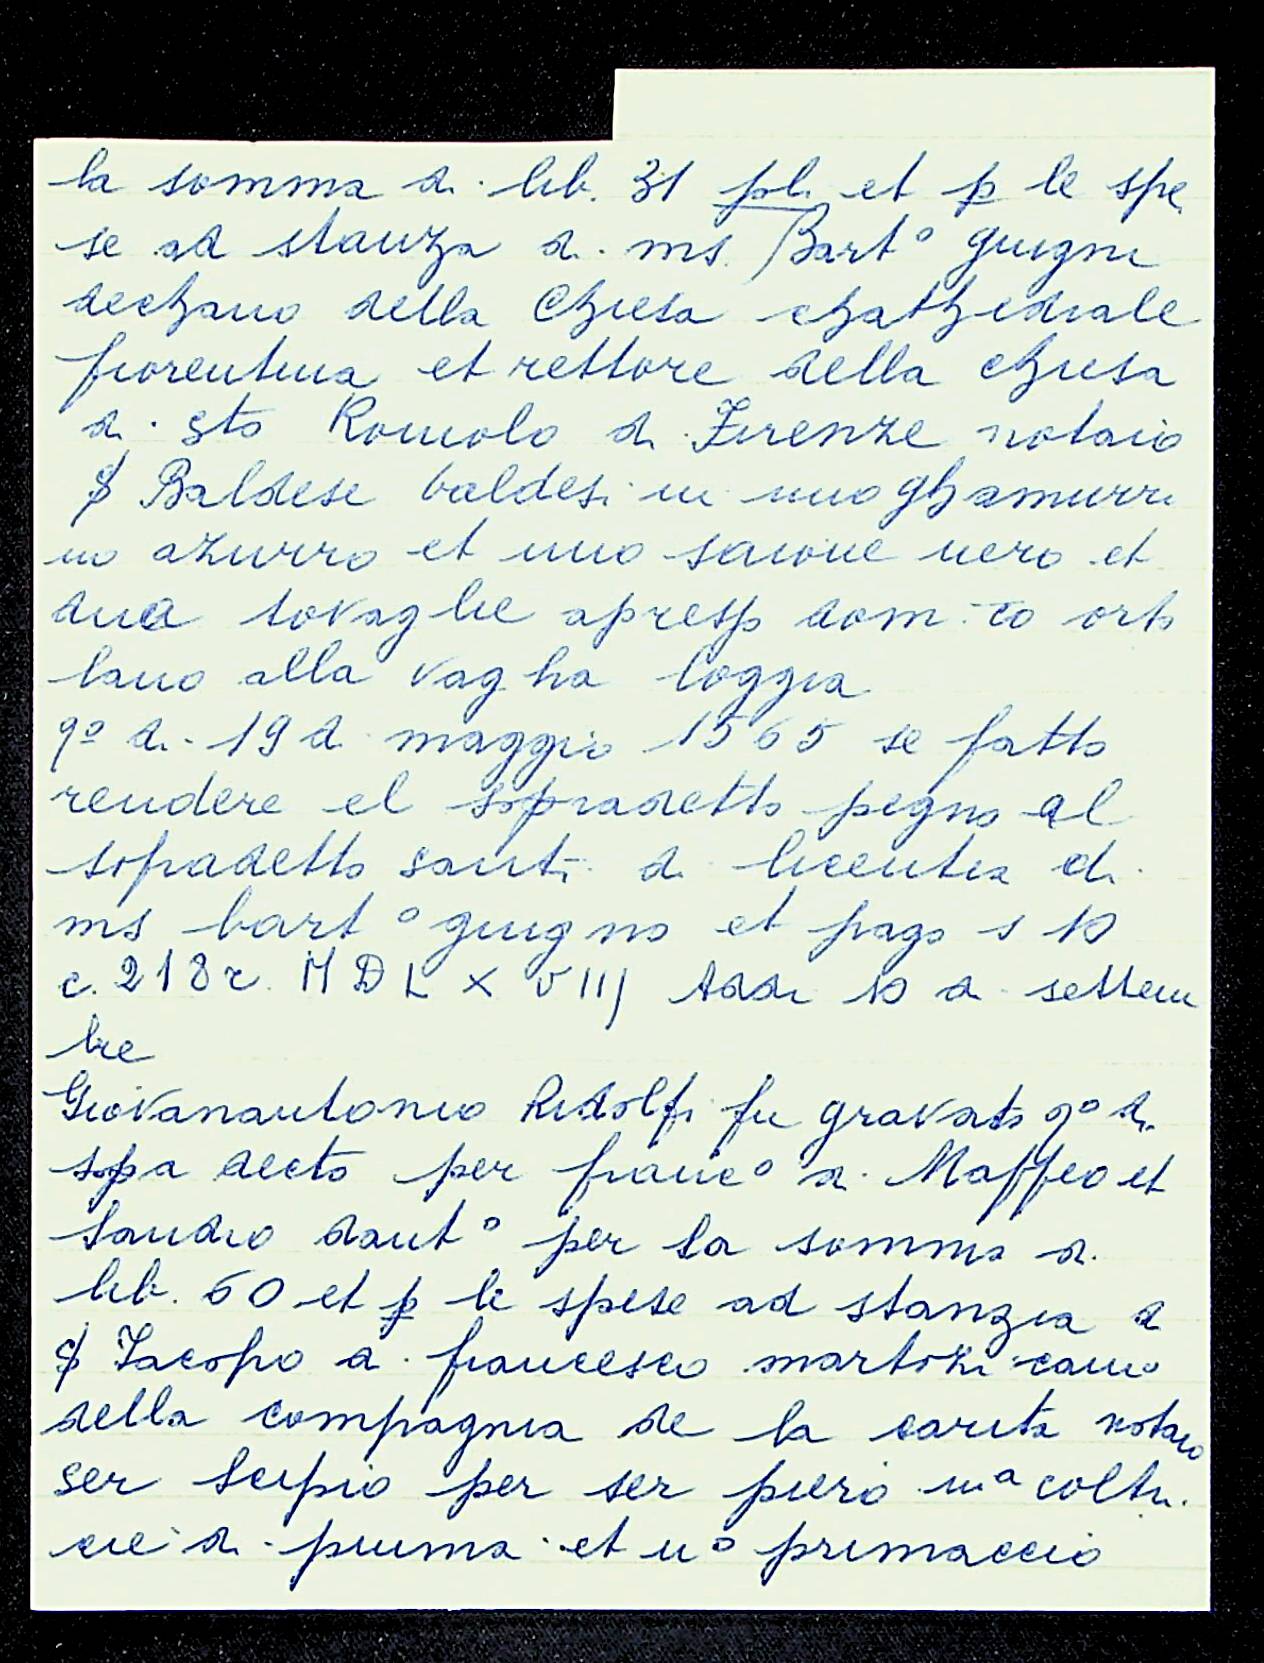 la somma di lib. 31 pli et p le spe
se ad stanza di ms. Bart° giugni
dechano della Chiesa chathedrale
fiorentina et rettore della chiesa
di sto Romolo di Firenze notaio
ser Baldese baldesi in uno ghamurri
no azurro et uno saione nero et
dua tovaglie apresso dom.co orto
lano alla vagha loggia
q° di 19 di maggio 1565 se fatto
rendere el sopradetto pegno al
sopradetto santi di licentia di
ms bart° giugno et pago s 10
c. 218r. MDLXVIII Addi 10 di settem
bre
Giovanantonio Ridolfi fu gravato q° di
sopa decto per franc° di Maffeo et
sandro dant° per la somma di
lib. 60 et p le spese ad stanzia di
ser Iacopo di francesco martini cam°
della compagnia de la carita notaio
ser scipio per ser piero una coltri
cie di piuma et u° primaccio